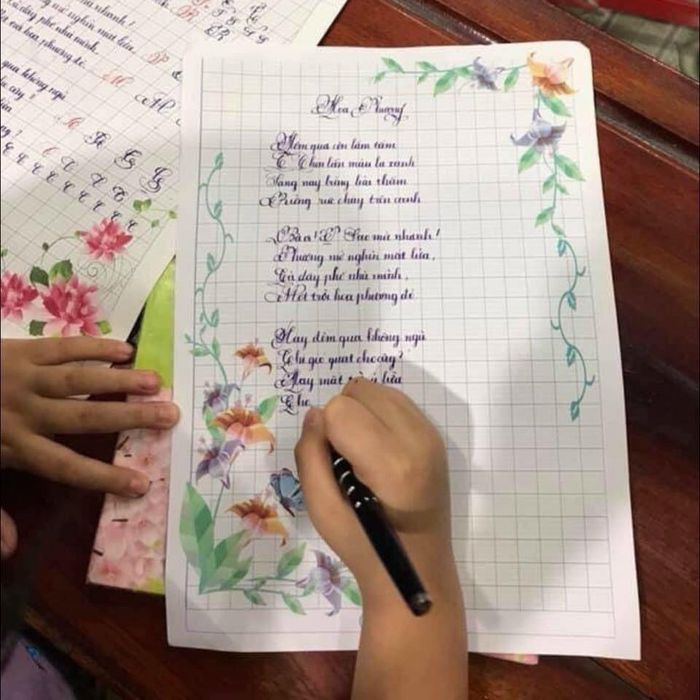 Hoa Phượng
Hôm qua còn lấm tấm
Chen lẫn màu lá xanh
Sáng nay bừng lửa thẫm
Rừng rực cháy trên cành
Bà ơi! Sao mà nhanh!
Phượng mở nghìn mắt lửa,
Cả dãy phố nhà mình,
Một trời hoa phượng đỏ
Hay đêm qua không ngủ
Chị gió quạt cho cây?
Hay mặt trời ủ lửa
Cho
nhanh!
mở nghìn mắt lửa,
dãy phố nhà mình,
trời hoa phượng đỏ
qua không ngủ
cho cây?
lửa